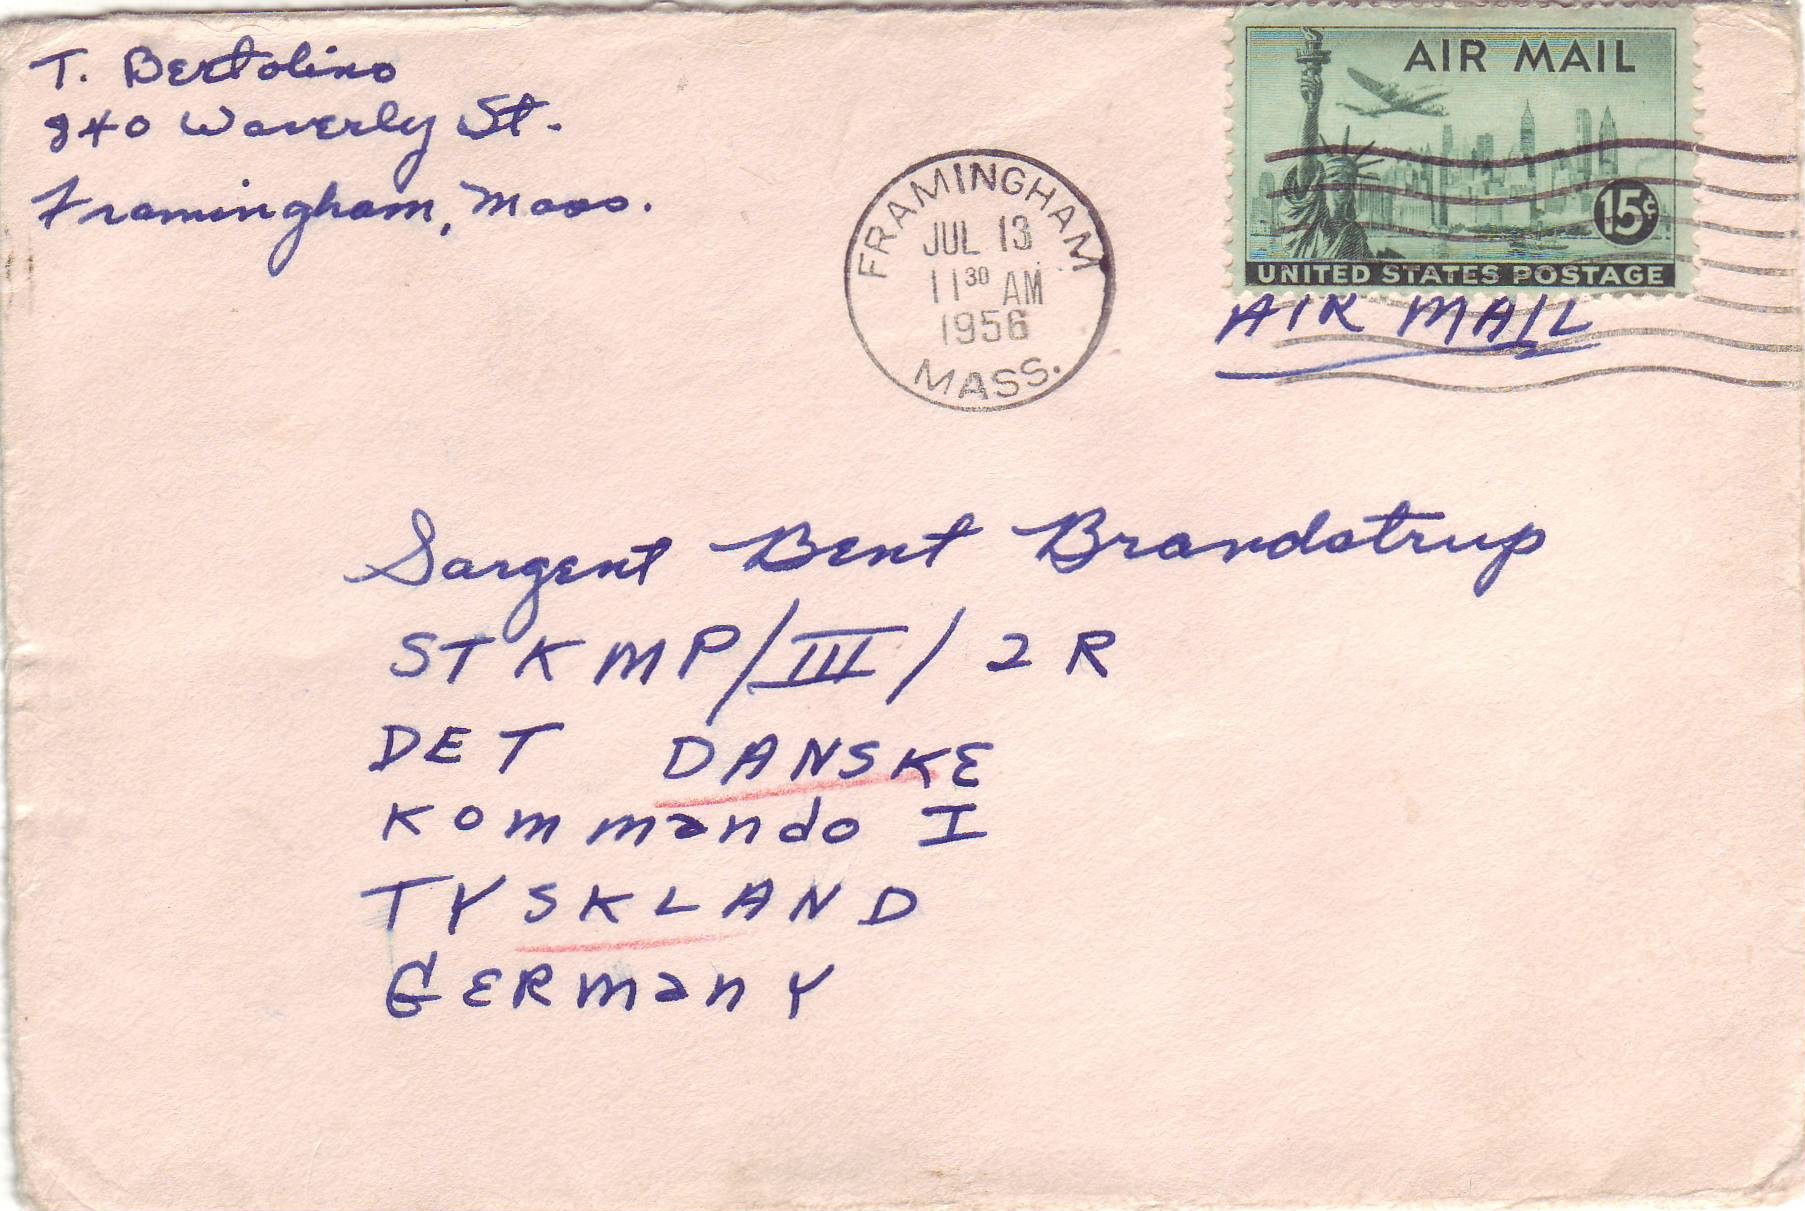 T. Bertolino
840 Waverly St.
Framingham, Mass.
FRAMINGHAM
JUL 13
11 30 AM
1956
MASS.
AIR MAIL
15¢
UNITED STATES POSTAGE
AIR MAIL
Sargent Bent Brandstrup
STKMP/III/2R
DET DANSKE
Kommando I
TYSKLAND
GERMANY